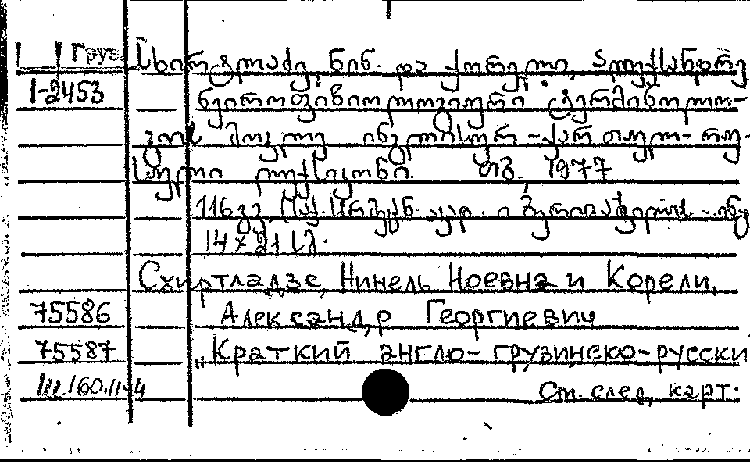 Груз სხირტლაძე, ნინ. და ქორელი, ალექსანდრე
1-2453 ნეიროფიზიოლოგიური ტერმინოლო-
გიის მოკლე ინგლისურ-ქართულ-რუ-
სული ლექსიკონი. თბ. 1977
116 გვ.
14×21 სმ.
Схиртладзе, Нинель Ноевна и Корели,
75586 Александр Георгиевич
75587 „Краткий англо-грузинско-русски
Ш.160.1144 См. след. карт.